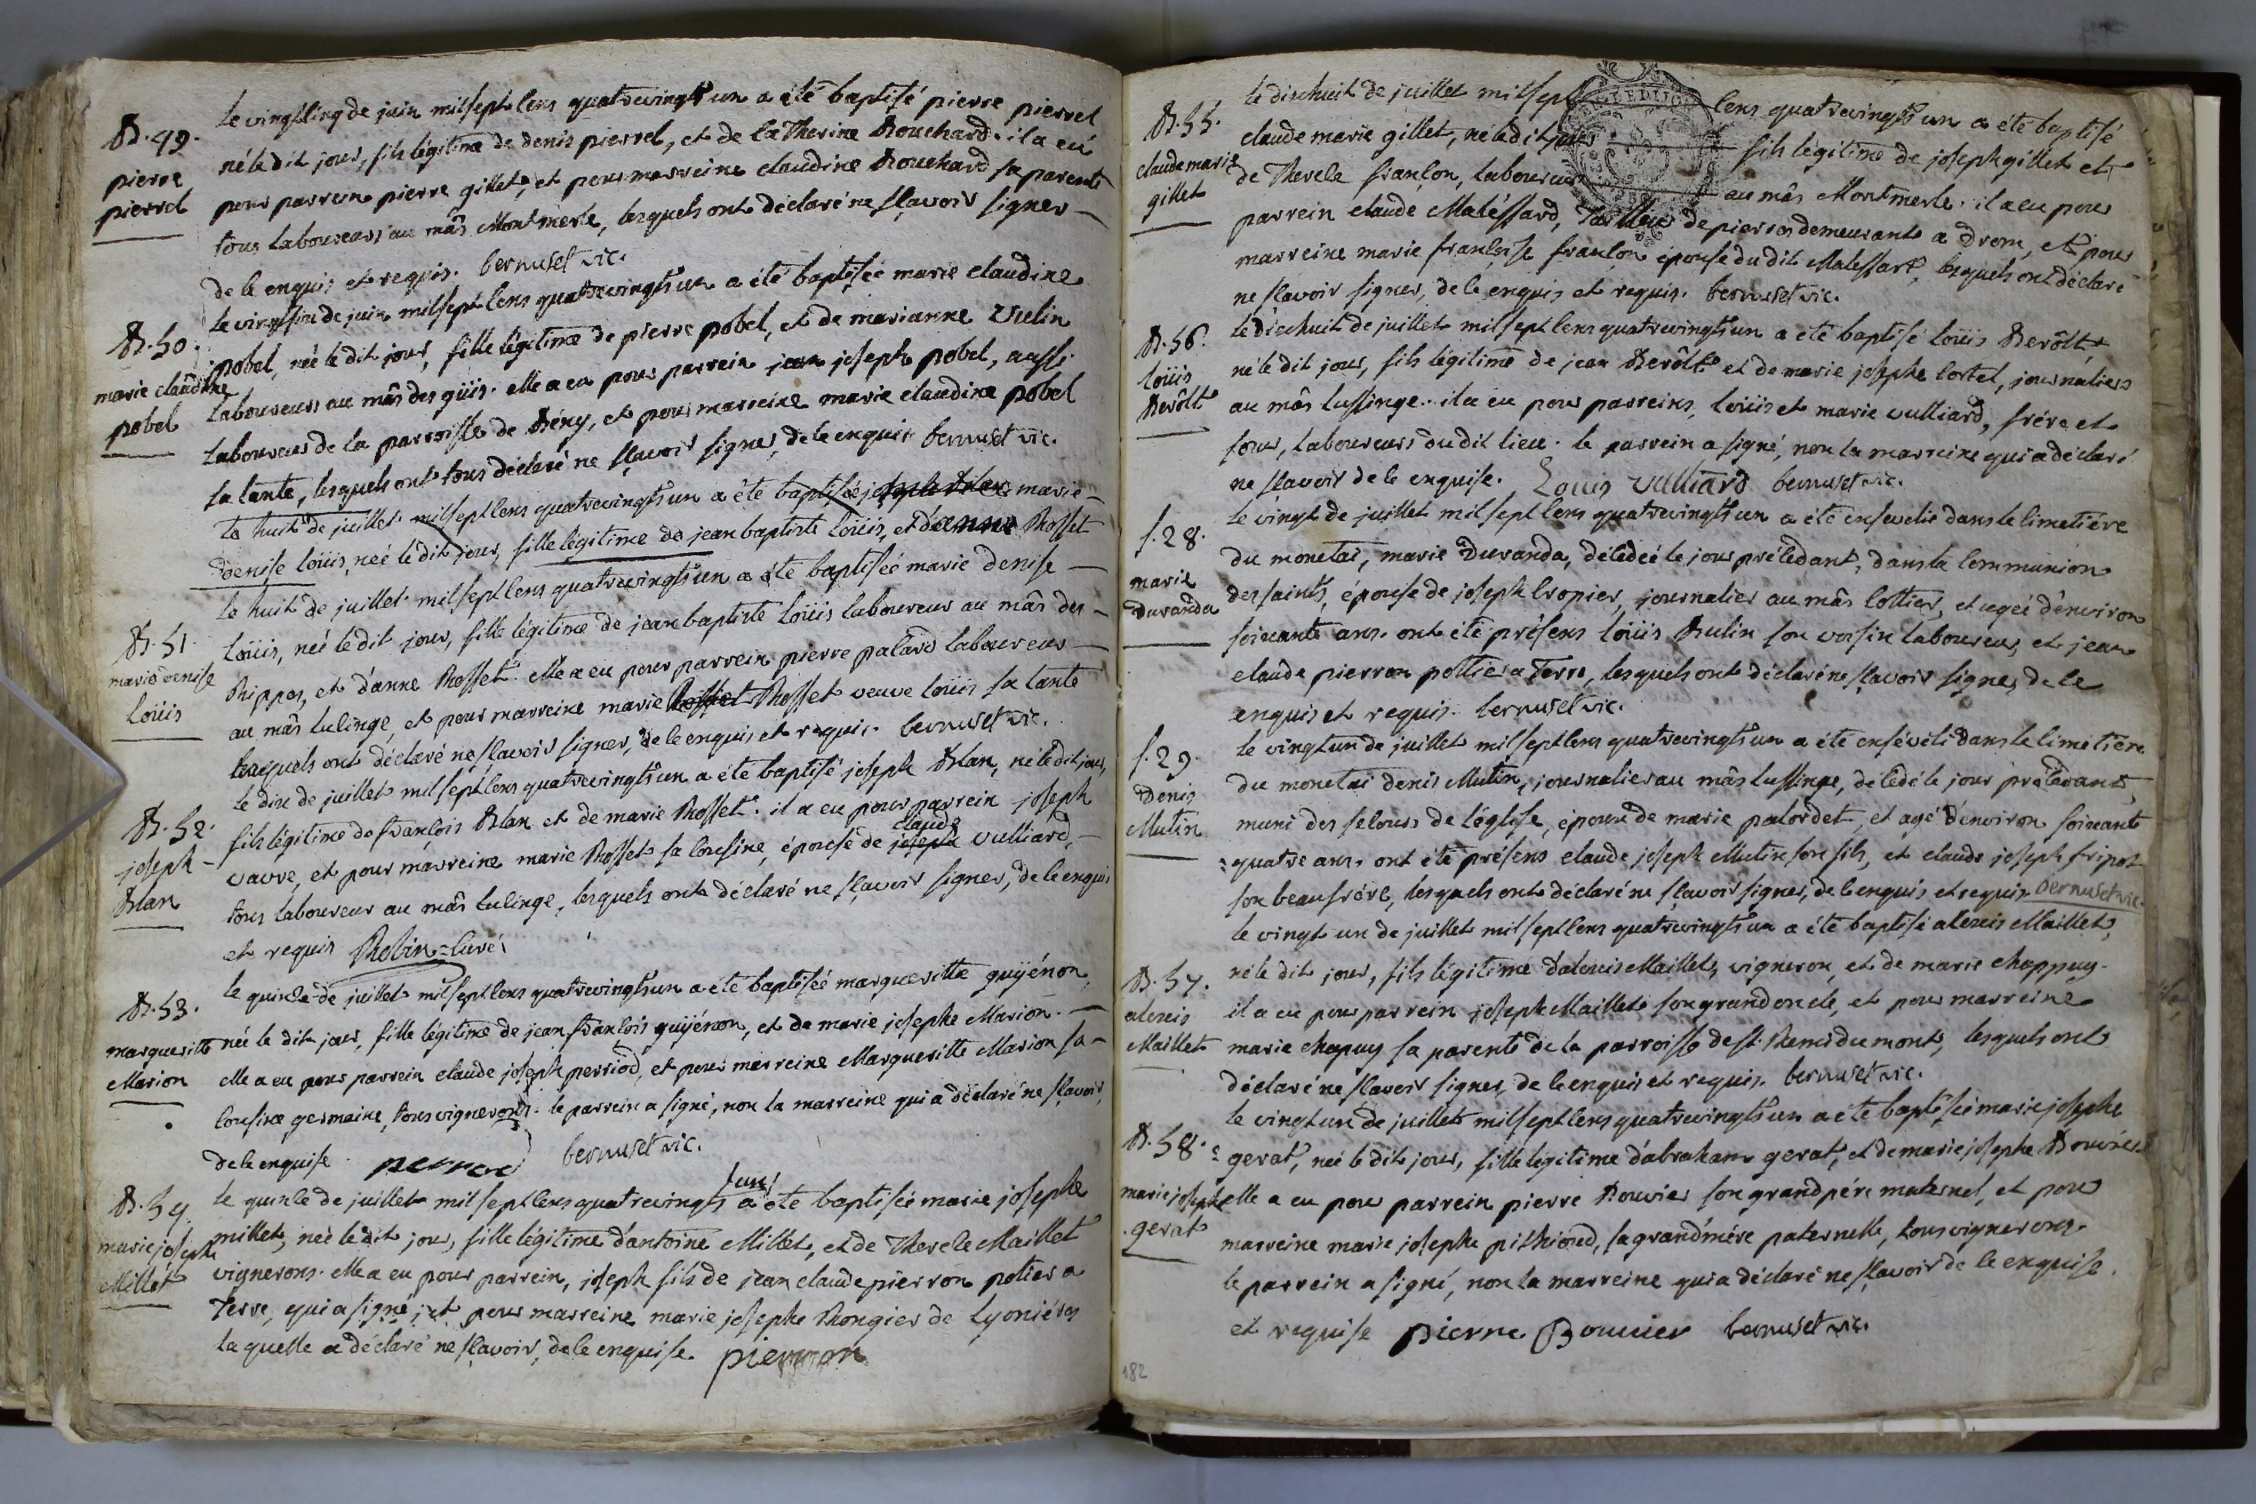 B. 49.
pierre
pierrel
le vingtcinq de juin mil sept cens quatrevingts un a été baptisé pierre pierrel
né le dit jour, fils légitime de denis pierrel, et de catherine Bouchard. il a eû
pour parrein pierre gillet, et pour marreine claudine Bouchard sa parente
tous laboureurs au mâs Montmerle, lesquels ont déclaré ne sçavoir signer
de ce enquis et requis. bernuset vic.
B. 50.
marie claudine
pobel
le de juin mil sept cens quatrevingts un a été baptisée marie claudine
pobel, née le dit jour, fille légitime de pierre pobel, et de marianne vulin
laboureurs au mâs des guis. elle a eu pour parrein jean joseph pobel, aussi
laboureur de la parroisse de Bény, et pour marreine marie claudine pobel
sa tante, lesquels ont tous déclaré ne sçavoir signer, de ce enquis bernuset vic.
le huit de juillet mil sept cens quatrevingts un a été baptisée joseph blan marie
denise loüis, née le dit jour, fille légitime de jean baptiste loüis, et d'anne Rosset
B. 51.
marie denise
loüis
le huit de juillet mil sept cens quatrevingts un a été baptisée marie denise
loüis, née le dit jour, fille légitime de jean baptiste loüis laboureur au mâs des
Rippes, et d'anne Rosset. elle a eu pour parrein pierre palard laboureur
au mâs lulinge, et pour marreine marie Rosset Rosset veuve loüis sa tante
lesquels ont déclaré ne sçavoir signer, de ce enquis et requis. bernuset vic.
B. 52.
joseph
Blan
le dix de juillet mil sept cens quatrevingts un a été baptisé joseph Blan, né le dit jour,
fils légitime de françois Blan et de marie Rosset. il a eu pour parrein joseph
vavre, et pour marreine marie Rosset sa cousine, épouse de joseph claude vulliard,
tous laboureur au mâs lulinge, lesquels ont déclaré ne sçavoir signer, de ce enquis
et requis Robin curé
B. 53.
marguerite
Marion
le quinze de juillet mil sept cens quatrevingts un a été baptisée marguerite guyénon,
née le dit jour, fille légitime de jean françois guyénon, et de marie josephe Marion.
elle a eu pour parrein claude joseph perriod, et pour marreine Marguerite Marion sa
cousine germaine, tous vignerons. le parrein a signé, non la marreine qui a déclaré ne sçavoir,
de ce enquise. perriod bernuset vic.
B. 54.
marie josephe
Millet
le quinze de juillet mil sept cens quatrevingts un a été baptisée marie josephe
millet, née le dit jour, fille légitime d'antoine Millet, et de Therese Maillet
vignerons. elle a eu pour parrein, joseph fils de jean claude pierron potier a
Terre, qui a signé, et pour marreine marie josephe Rongier de Lyonières
la quelle a déclaré ne sçavoir, de ce enquise. pierron
B. 55.
claude marie
gillet
le dixhuit de juillet mil sept cens quatrevingts un a été baptisé
claude marie gillet, né le dit jour fils légitime de joseph gillet et
de Therese françon, laboureurs au mâs Montmerle. il a eu pour
parrein claude Maléssard, Tailleur de pierres demeurant a drom, et pour
marreine marie françoise françon épouse du dit Malessard, lesquels ont déclaré
ne sçavoir signer, de ce enquis et requis. bernuset vic.
B. 56.
loüis
Berôlt
le dixhuit de juillet mil sept cens quatrevingts un a été baptisé loüis Berôlt
né le dit jour, fils légitime de jean Berôlt et de marie josephe cortel, journaliers
au mâs lussinge. il a eu pour parreins, loüis et marie vulliard, frére et
sœur, laboureurs du dit lieu. le parrein a signé, non la marreine qui a déclaré
ne sçavoir de ce enquise. Louis vulliard bernuset vic.
S. 28.
marie
Duranda
le vingt de juillet mil sept cens quatrevingts un a été ensevelie dans le cimetiére
du monetai, marie Duranda, décédée le jour précédant, dans la communion
des saints, épouse de joseph cropier, journalier au mâs cottier, et agée d'environ
soixante ans. ont été présens loüis Bulin son voisin laboureur, et jean
claude pierron pottier a Terre, lesquels ont déclaré ne sçavoir signer, de ce
enquis et requis. bernuset vic.
S. 29.
Denis
Mutin
le vingt un de juillet mil sept cens quatrevingts un a été enseveli dans le cimetiére
du monetai denis Mutin, journalier au mâs lussinge, décédé le jour précédant,
muni des secours de l'église, époux de marie palordet, et agé d'environ soixante
quatre ans. ont été présens claude joseph Mutin son fils, et claude joseph fripot
son beaufrére, lesquels ont déclaré ne sçavoir signer, de ce enquis et requis bernuset vic.
B. 57.
alexis
Maillet
le vingt un de juillet mil sept cens quatrevingts un a été baptisé alexis Maillet,
né le dit jour, fils légitime d'alexis Maillet, vigneron, et de marie chappuy.
il a eu pour parrein joseph Maillet son grand oncle, et pour marreine
marie chapuy sa parente de la parroisse de st. Remi du mont, lesquels ont
déclaré ne sçavoir signer, de ce enquis et requis. bernuset vic.
B. 58.
marie josephe
gerat
le vingt un de juillet mil sept cens quatrevingts un a été baptisée marie josephe
gerat, née le dit jour, fille légitime d'abraham gerat, et de marie josephe Bouvier.
elle a eu pour parrein pierre Bouvier son grandpére maternel, et pour
marreine marie josephe pithioud, sa grandmére paternelle, tous vignerons.
le parrein a signé, non la marreine qui a déclaré ne sçavoir de ce enquise.
et requise pierre Bouvier bernuset vic.
182